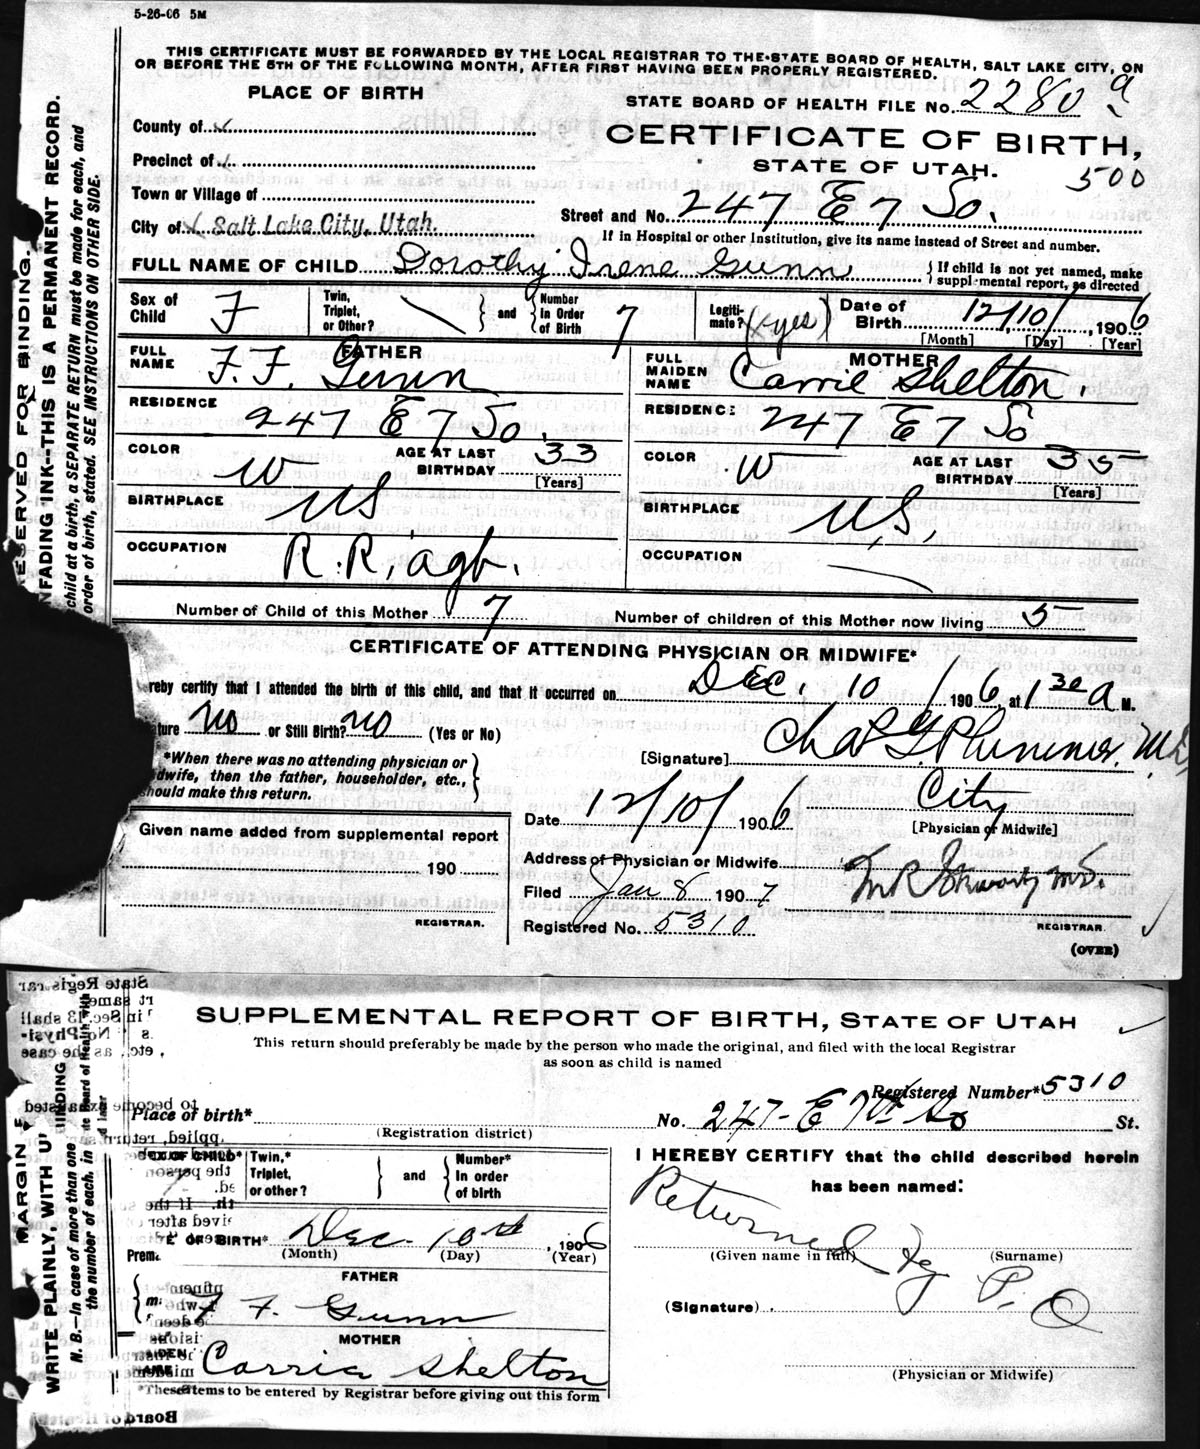 5-26-06 5M
THIS CERTIFICATE MUST BE FORWARDED BY THE LOCAL REGISTRAR TO THE STATE BOARD OF HEALTH, SALT LAKE CITY, ON
OR BEFORE THE 5TH OF THE FOLLOWING MONTH, AFTER FIRST HAVING BEEN PROPERLY REGISTERED.
PLACE OF BIRTH
STATE BOARD OF HEALTH FILE No. 2280 a
County of
CERTIFICATE OF BIRTH,
Precinct of
STATE OF UTAH. 500
Town or Village of
Street and No. 247 E 7 So.
City of Salt Lake City, Utah.
If in Hospital or other Institution, give its name instead of Street and number.
FULL NAME OF CHILD Dorothy Irene Gunn
If child is not yet named, make
supplemental report, as directed
Sex of Child F
Twin, Triplet, or Other?
and
Number in Order of Birth 7
Legitimate? (yes)
Date of Birth 12/10/, 1906
[Month] [Day] [Year]
FATHER
FULL NAME F. F. Gunn
MOTHER
FULL MAIDEN NAME Carrie Shelton.
RESIDENCE 247 E 7 So.
RESIDENCE 247 E 7 So
COLOR W AGE AT LAST BIRTHDAY 33 [Years]
COLOR W AGE AT LAST BIRTHDAY 35 [Years]
BIRTHPLACE US
BIRTHPLACE U.S.
OCCUPATION R.R. agt.
OCCUPATION
Number of Child of this Mother 7
Number of children of this Mother now living 5
CERTIFICATE OF ATTENDING PHYSICIAN OR MIDWIFE*
ereby certify that I attended the birth of this child, and that it occurred on Dec. 10 / 1906, at 1 30 a M.
ture No or Still Birth? No (Yes or No)
[Signature] Chas G. Plummer, M.D.
*When there was no attending physician or
dwife, then the father, householder, etc.,
should make this return.
Date 12/10/ 1906
City
[Physician or Midwife]
Given name added from supplemental report
190
REGISTRAR.
Address of Physician or Midwife
Filed Jan 8 1907
Registered No. 5310
REGISTRAR.
(OVER)
ESERVED FOR BINDING.
NFADING INK—THIS IS A PERMANENT RECORD.
child at a birth, a SEPARATE RETURN must be made for each, and
order of birth, stated. SEE INSTRUCTIONS ON OTHER SIDE.
SUPPLEMENTAL REPORT OF BIRTH, STATE OF UTAH
This return should preferably be made by the person who made the original, and filed with the local Registrar
as soon as child is named
Registered Number* 5310
Place of birth*
(Registration district)
No. 247- E 7th So St.
SEX OF CHILD*
Twin,* Triplet, or other?
and
Number* In order of birth
I HEREBY CERTIFY that the child described herein
has been named:
Returned by P. O
DATE OF BIRTH* Dec. 10th, 1906
(Month) (Day) (Year)
(Given name in full) (Surname)
FATHER
F F. Gunn
(Signature)
MOTHER
Carrie Shelton
(Physician or Midwife)
*These items to be entered by Registrar before giving out this form
MARGIN
WRITE PLAINLY, WITH U
INDING
N. B.—In case of more than one
the number of each, in